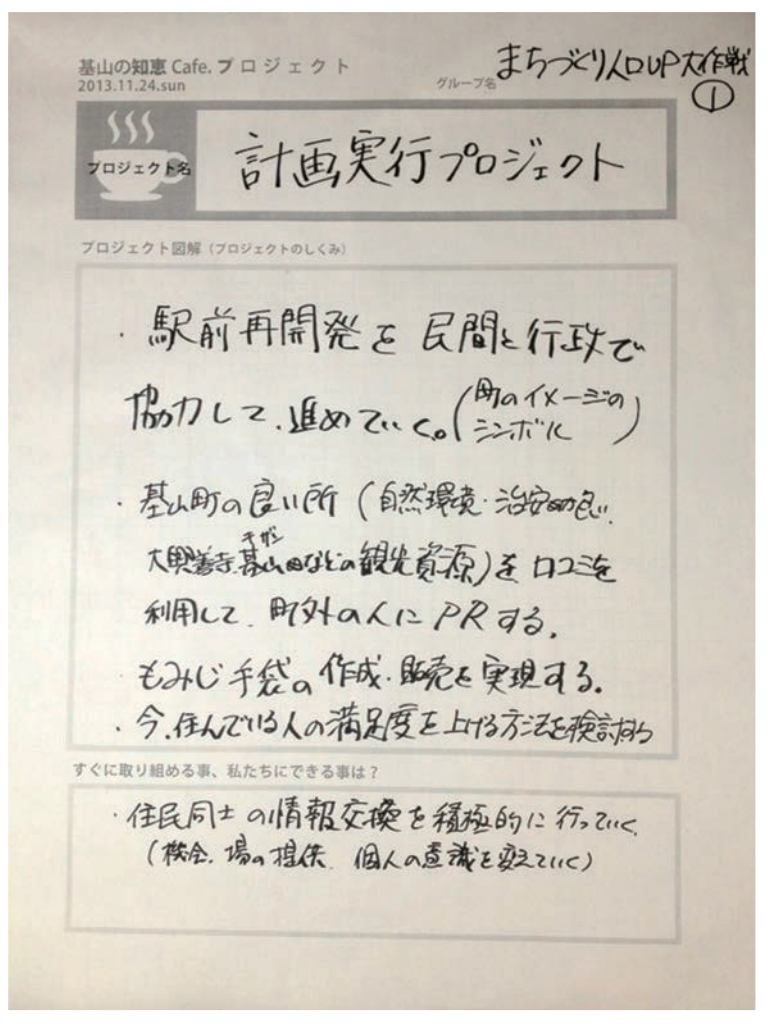 基山の知恵 Cafe. プロジェクト
2013.11.24.sun
グループ名 まちづくり人口UP大作戦
①
プロジェクト名 計画実行プロジェクト
プロジェクト図解（プロジェクトのしくみ）
・駅前再開発を 民間と行政で
協力して、進めていく。(町のイメージの
シンボル)
・基山町の良い所 (自然環境・治安の良い、
キザン
大興善寺、基山などの観光資源)を口コミを
利用して、町外の人にPRする。
・もみじ手袋の作成・販売を実現する。
・今、住んでいる人の満足度を上げる方法を検討する
すぐに取り組める事、私たちにできる事は？
・住民同士の情報交換を積極的に行っていく
(機会、場の提供、個人の意識を変えていく)